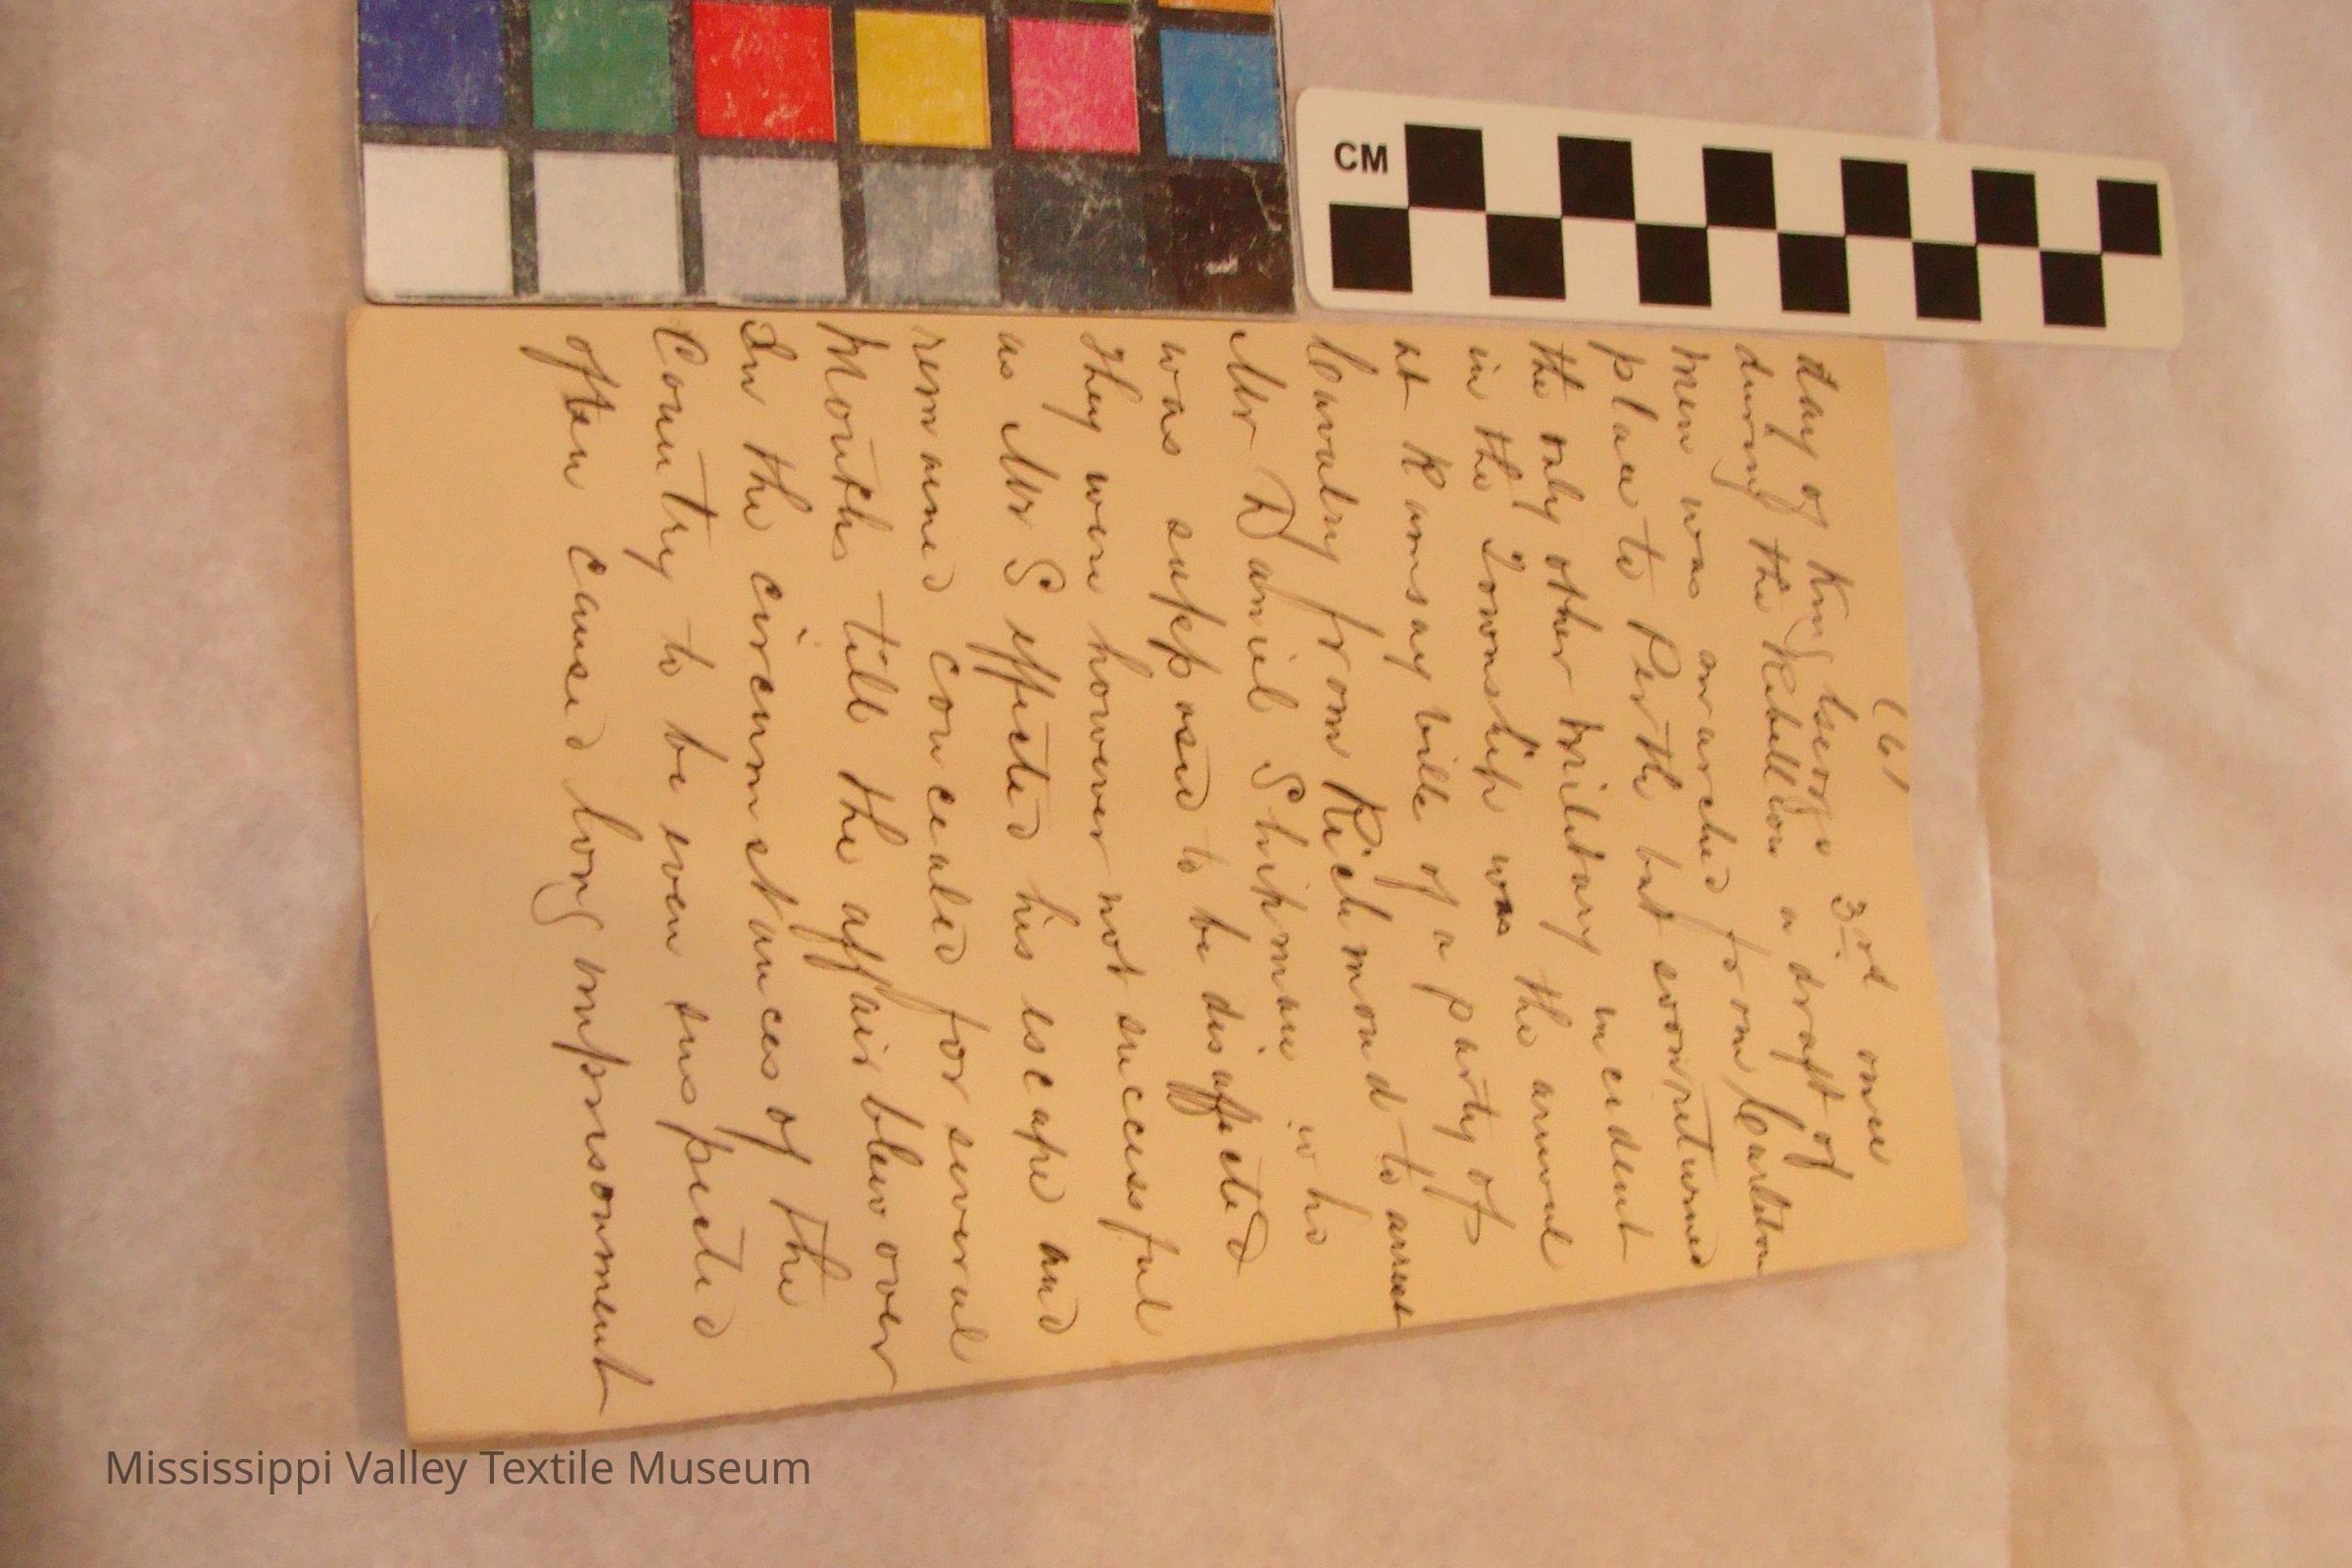 CM
(6)
day of King George 3rd once
during the Rebellion a draft of
men was marched from Carleton
place to Perth but soon returned
the only other military incedent
in the Township was the arrival
at Ramsayville of a party of
Cavalry from Richmond to arrest
Mr Daniel Shipman who
was supposed to be disaffected
They were however not successful
as Mr S effected his escape and
remained concealed for several
Months till the affair blew over
In the circumstances of the
Country to be even suspected
often caused long imprisonment
Mississippi Valley Textile Museum